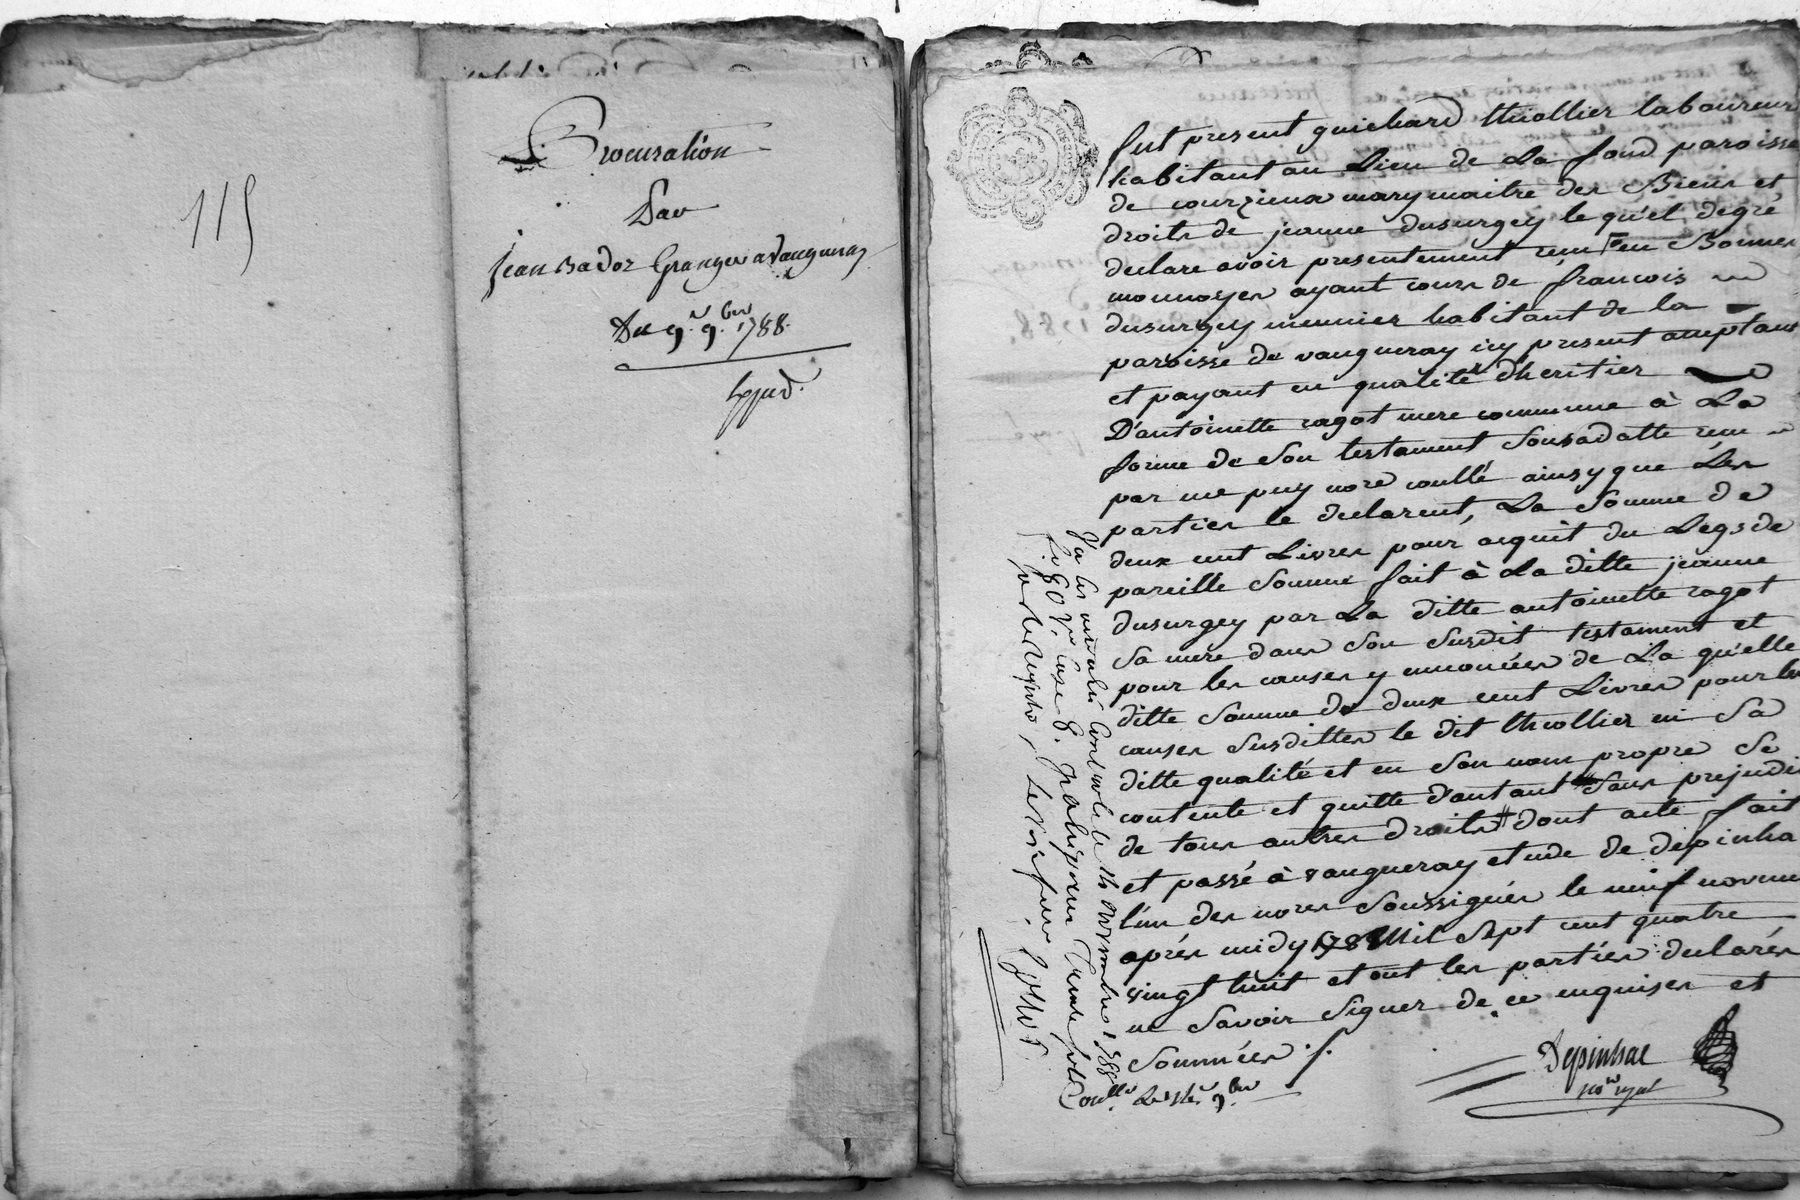 115
Procuration
Par
jean Bador Granger a Vaugneray
Du 9.e 9.bre 1788.
Expéd.
fut present guichard thollier laboureur
habitant au Lieu de La fond paroisse
de courzieux mary maitre des Biens et
droits de jeanne dusurgey le quel degré
declare avoir presentement reçu en Bonnes
monnoyes ayant cours de françois
dusurgey meunier habitant de la
paroisse de vaugneray icy present acceptant
et payant en qualité d'heritier
D'antoinette ragot mere commune à La
forme de Son testament Sousadatte reçu
par me puy nore coullé ainsy que Les
parties le declarent, La Somme de
deux cent Livres pour acquit du Legs de
pareille Somme fait à La ditte jeanne
dusurgey par La ditte antoinette ragot
Sa mere dans Son Susdit testament et
pour les causes y enoncées de La qu'elle
ditte Somme de deux cent Livres pour les
causes Susdittes le dit thollier en Sa
ditte qualité et en Son nom propre Se
contente et quitte d'autant Sans prejudi
de tous autres droits dont acte fait
et passé à vaugneray etude de depinha
l'un des nores Soussignés le neuf novem
après midy Mil Sept cent quatre
vingt huit et ont les parties declarés
ne Savoir Signer de ce enquises et
Sommées ./.
Depinhac
nore royal
9.bre